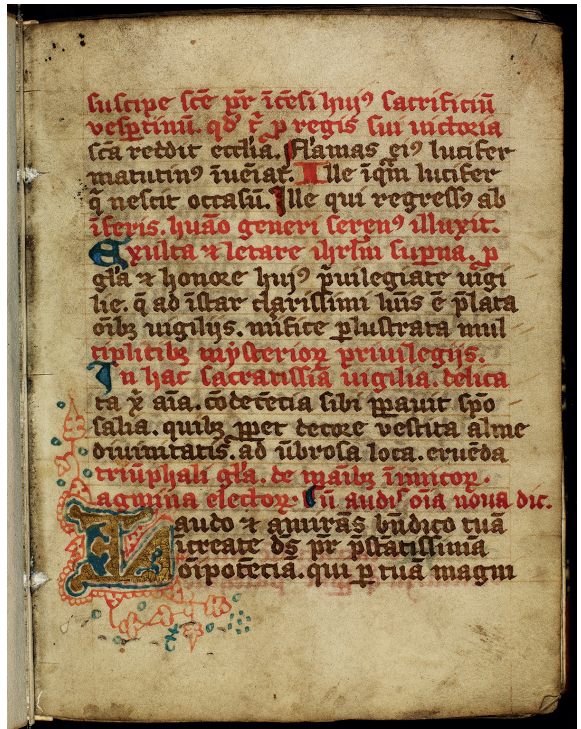 suscipe sc̄e pr̄ īcēsi huiꝰ sacrificiū
vespertinū. qd̓ t̄ p regis sui uictoria
sc̄a reddit eccl̓ia. Flamas eiꝰ lucifer
matutinꝰ īueīat. Ille īq̄m lucifer
q̄ nescit occasū. Ille qui regressꝰ ab
īferis. huāo generi serenꝰ illuxit.
Exulta ⁊ letare ihrl̓m suprna. p
gl̓a ⁊ honore huiꝰ p̄uilegiate uigi
lie. q̄ ad īstar clarissimi lūis ē p̄lata
oīb₃ uigilijs. mīfice ꝑlustrata mul
tiplicib₃ mysterioꝝ priuilegijs.
In hac sacratissīa uigilia. delica
ta x̄ aīa. cōdecēcia sibi ꝑpauit spōsalia. quib₃ ꝓpet decore vestita alme
diuinitatis. ad ūbrosa loca. eruēda
triūphali gl̓a. de maīb₃ īimicoꝝ.
agmina electoꝝ. Cū audis̓ oīa noua dic.
Laudo ⁊ amirās bn̄dico tuā
īcreate ds̄ pr̄ p̄stātissimā
oīpotēcia. qui ꝑ tuā magni